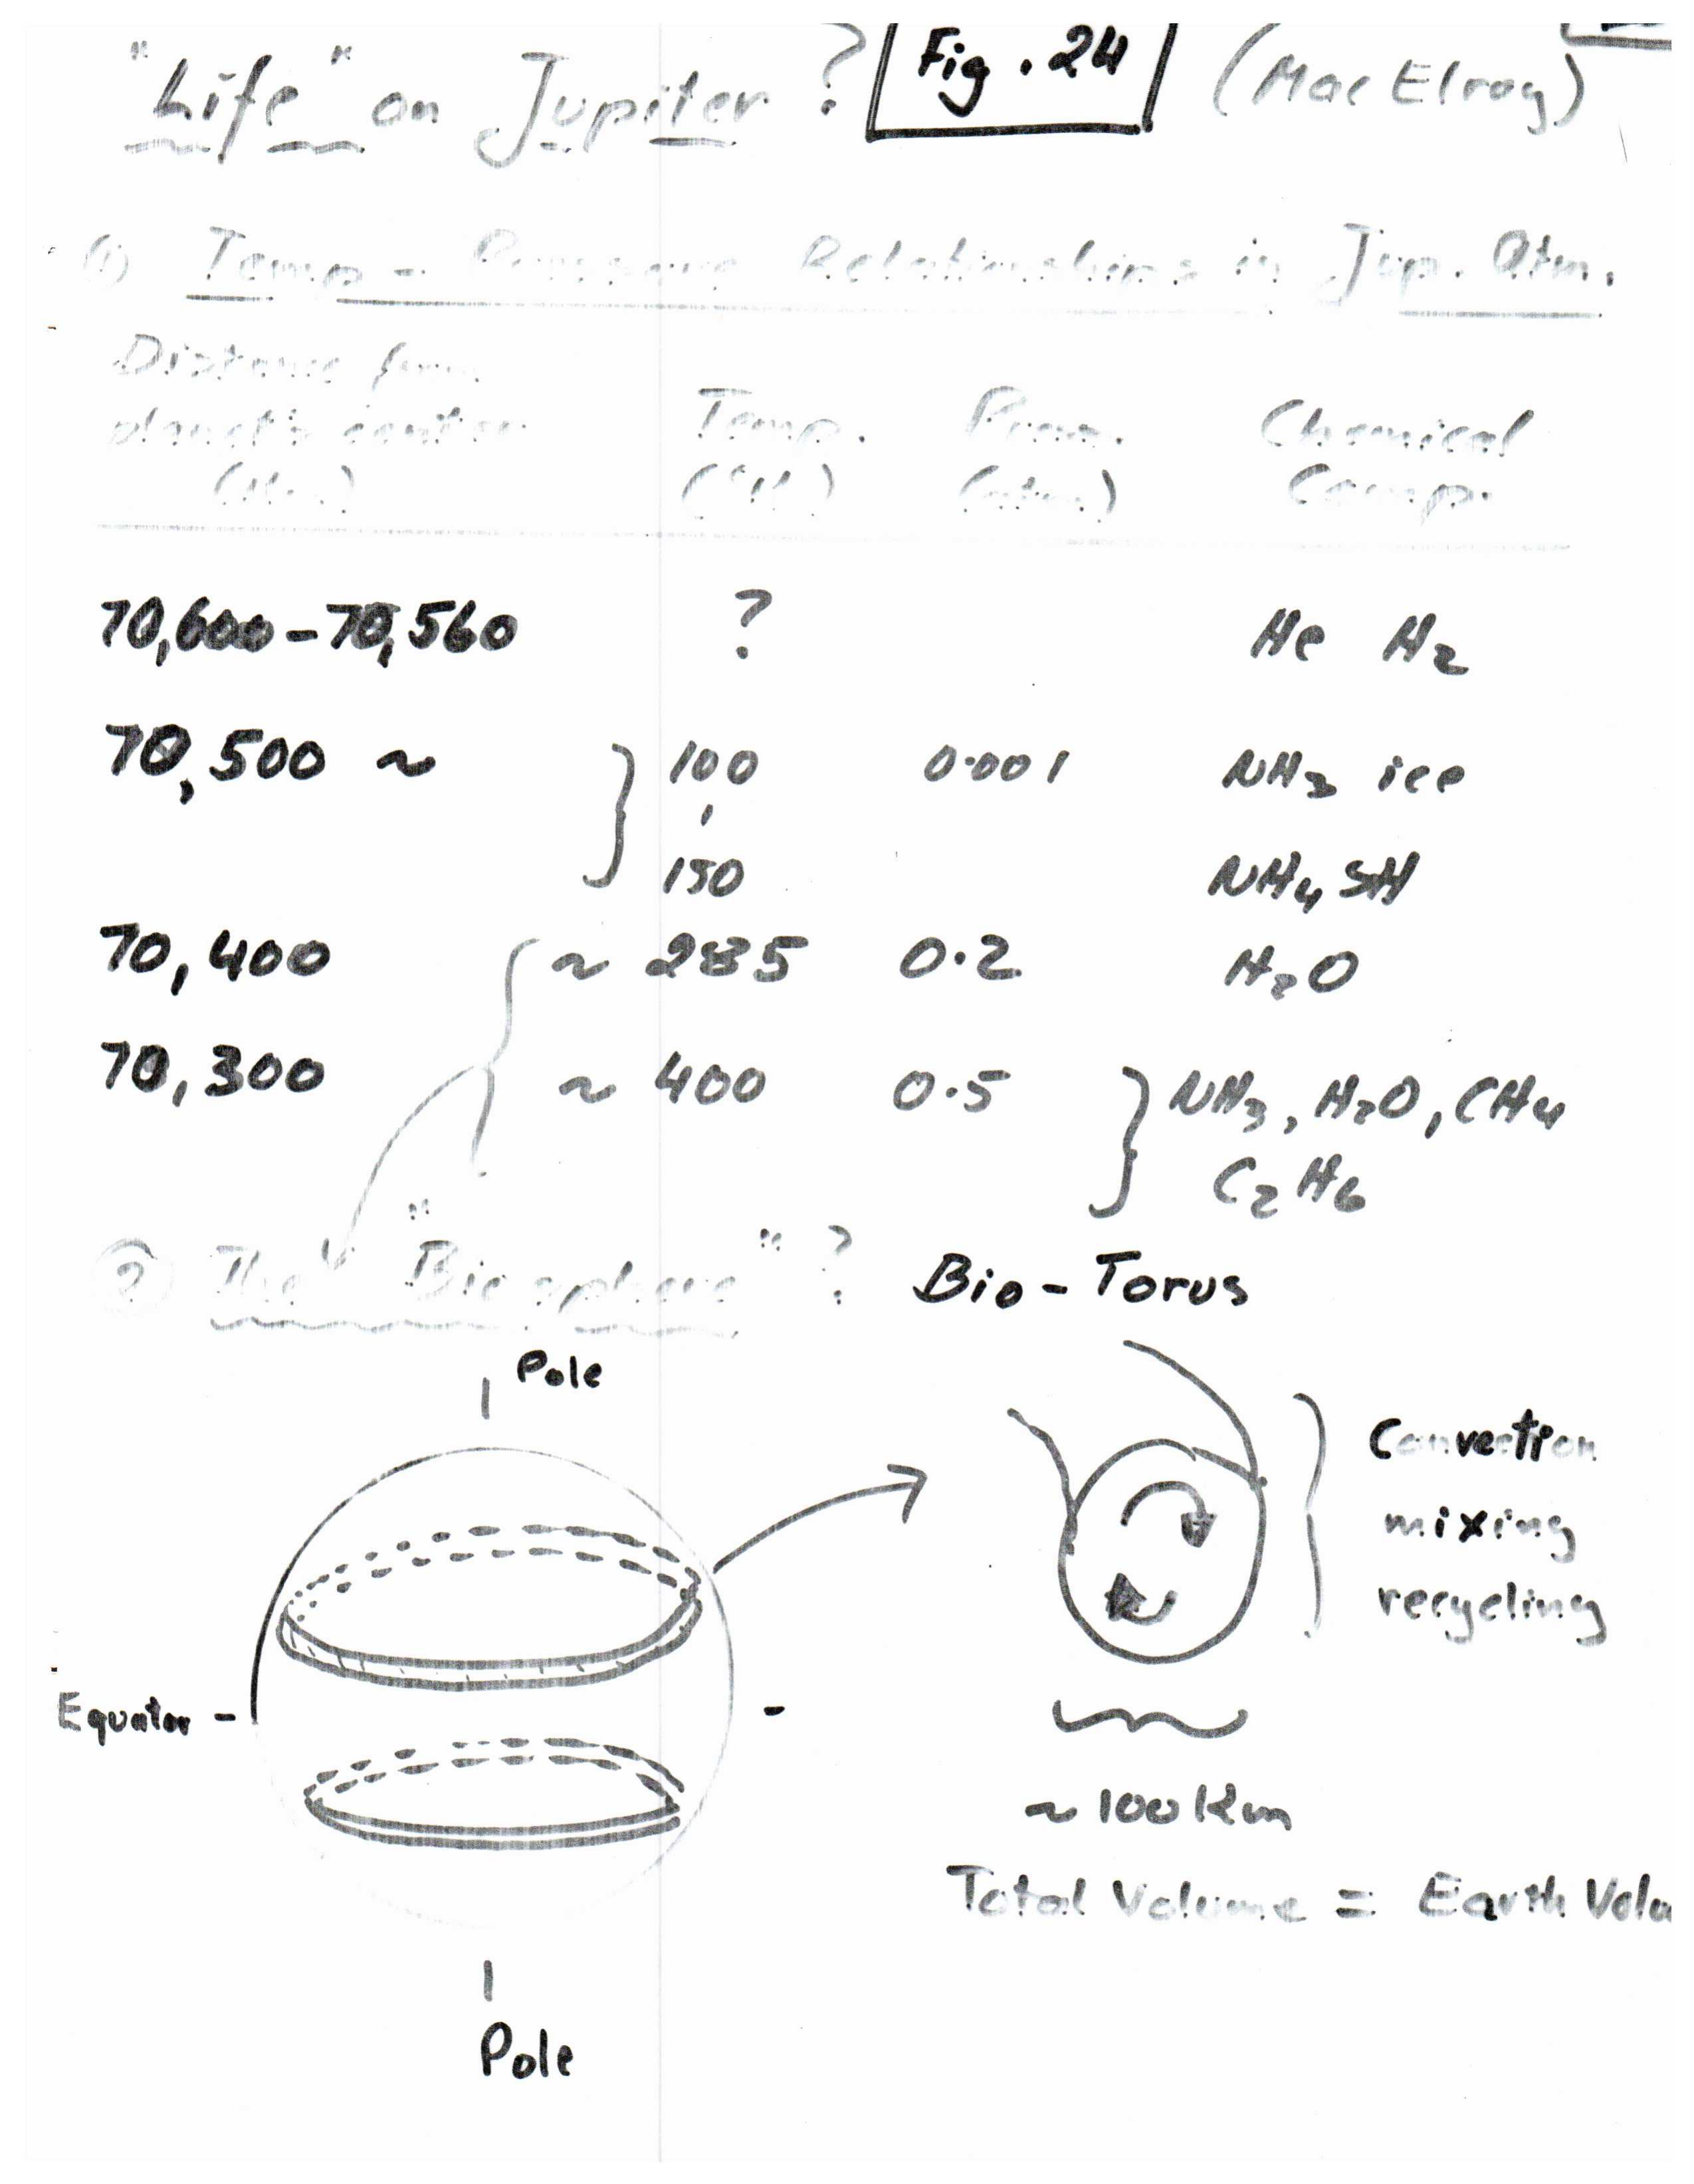 "Life" on Jupiter ? Fig. 24 (MacElroy)
(1) Temp - Pressure Relationships in Jup. Atm.
Distance from
planet's center Temp. Press. Chemical
(Km) (°K) (atm) Comp.
70,600-70,560 ? He H2
70,500 ~ } 100 0.001 NH3 ice
150 NH4SH
70,400 { ~ 285 0.2 H2O
70,300 ~ 400 0.5 } NH3, H2O, CH4
C2H6
(2) The "Biosphere" ? Bio-Torus
Pole
Convection
mixing
recycling
Equator -
-
~ 100 Km
Total Volume = Earth Volu
Pole